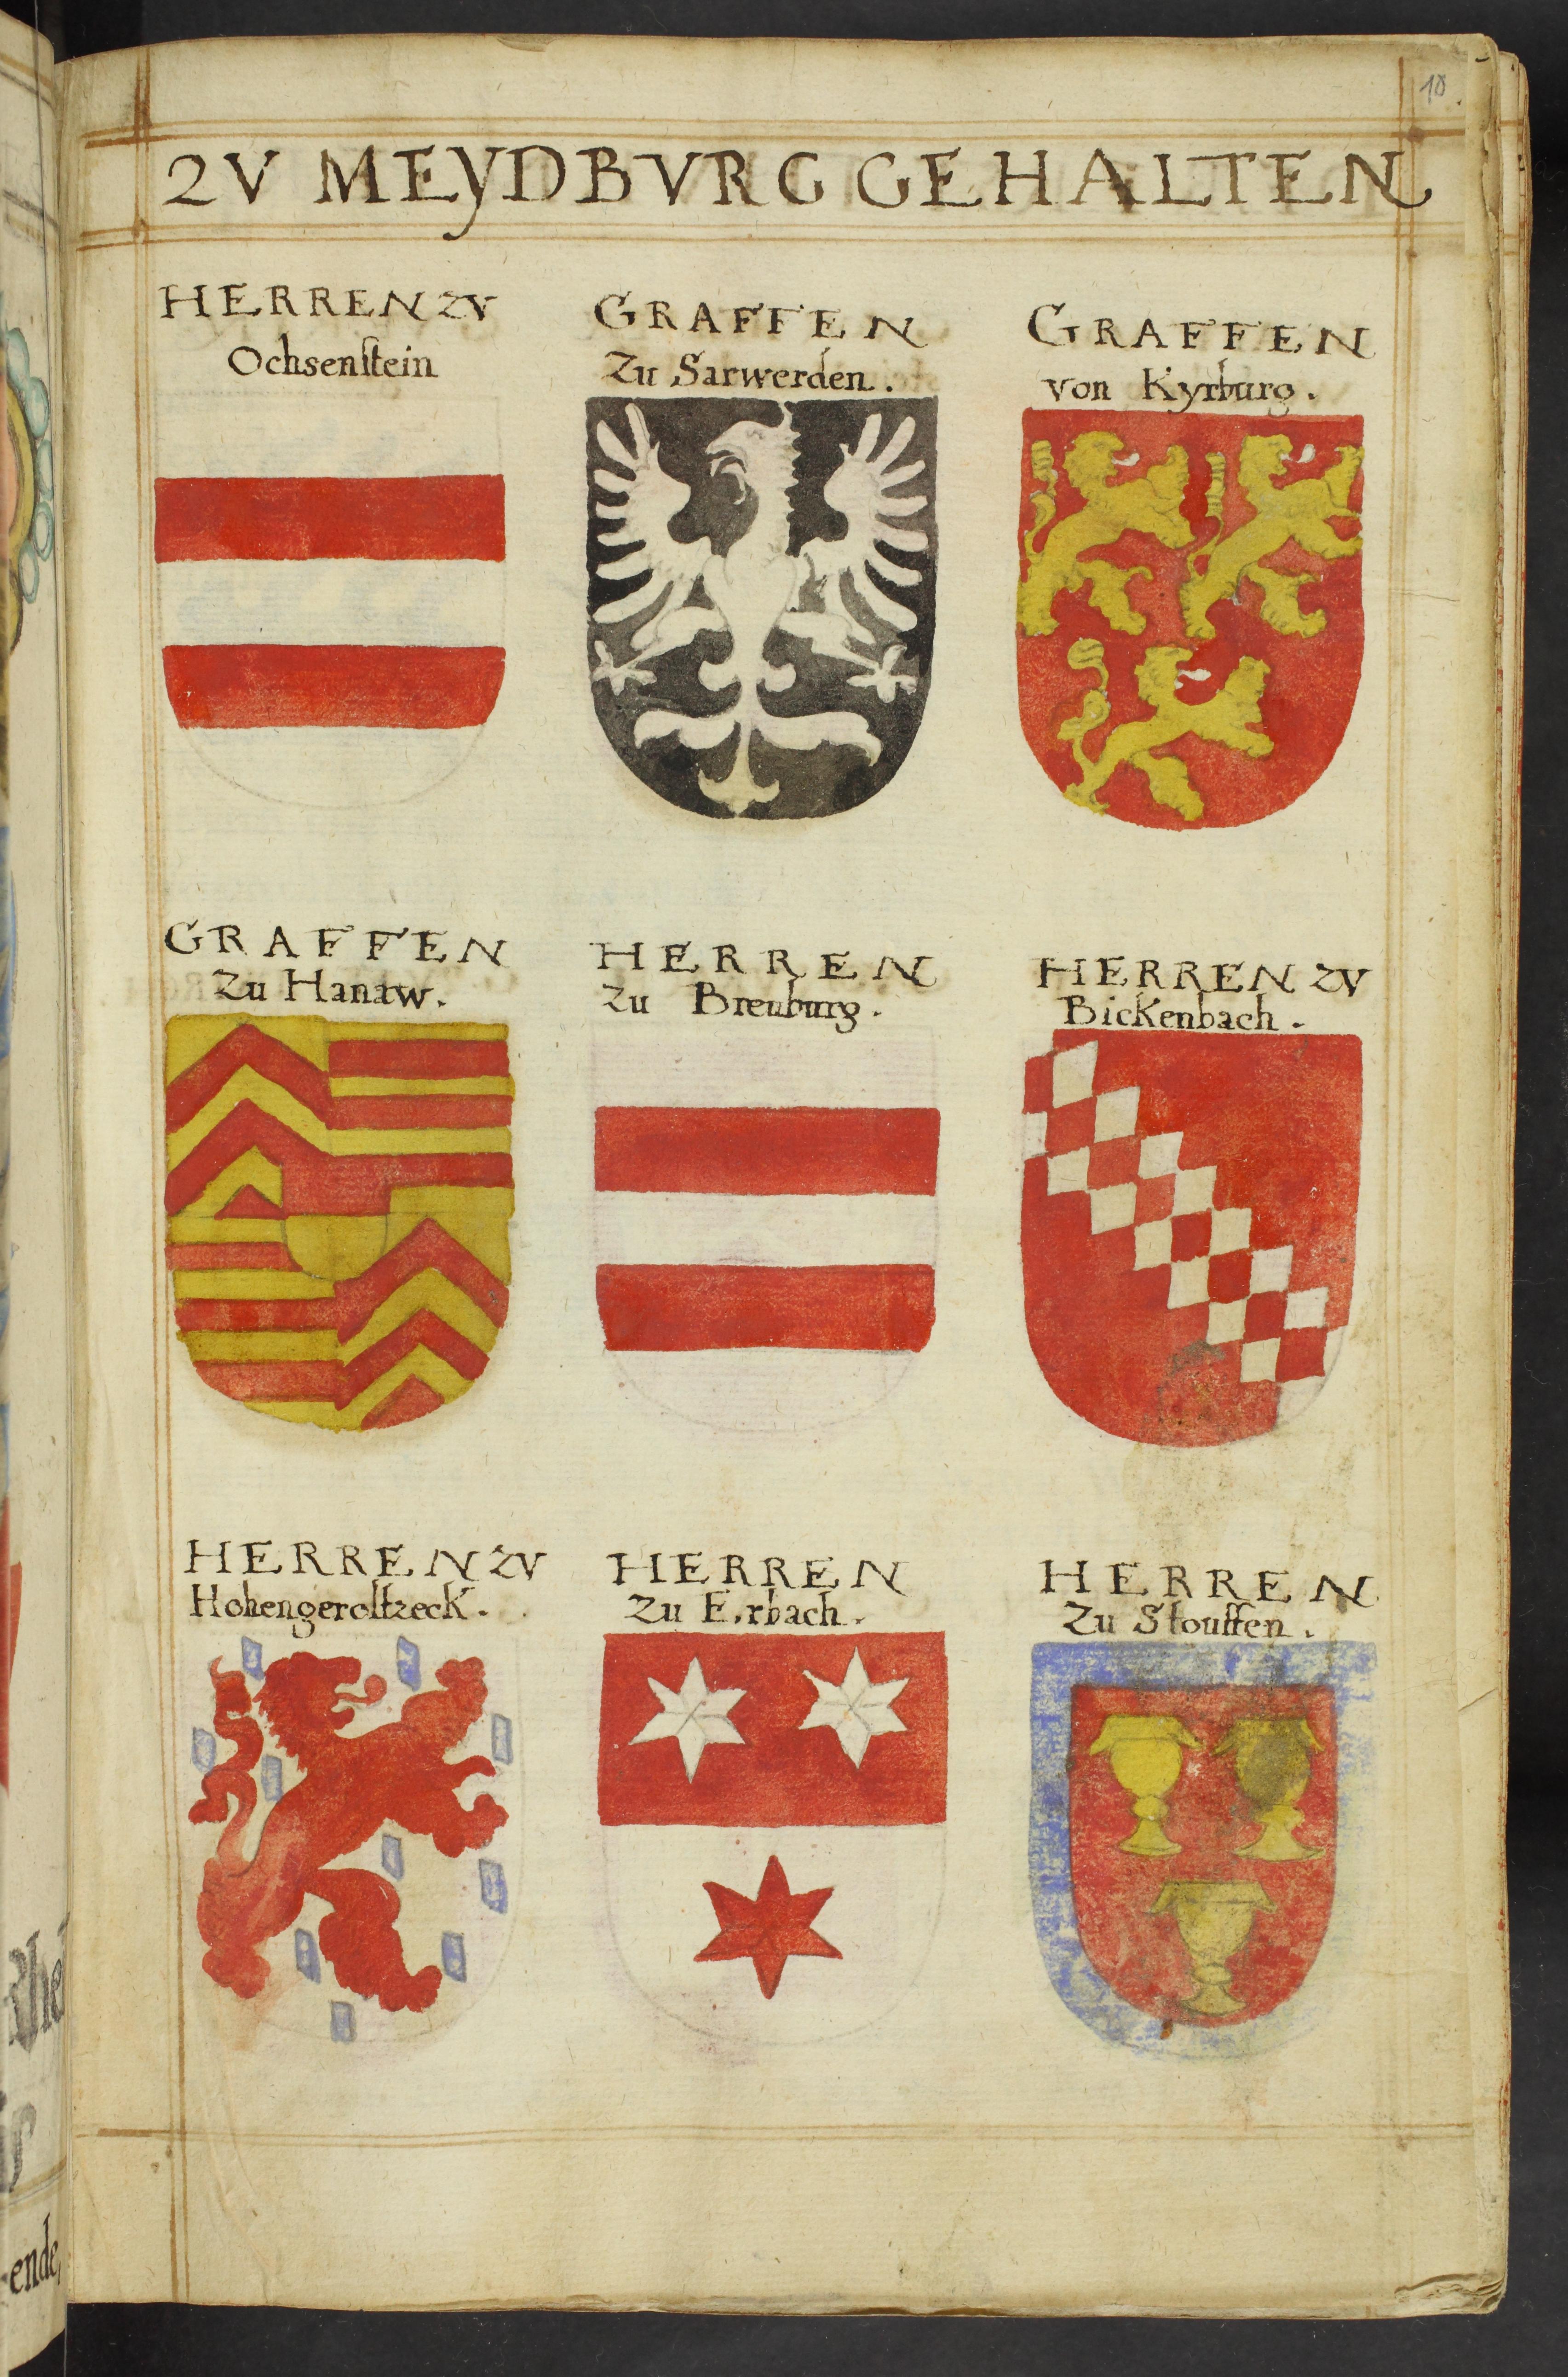 10.
ZV MEYDBVRG GEHALTEN
HERREN ZV
Ochsenstein
GRAFFEN
Zu Sarwerden.
GRAFFEN
von Kyrburg.
GRAFFEN
Zu Hanaw.
HERREN
Zu Breuburg.
HERREN ZV
Bickenbach.
HERREN ZV
Hohengeroltzeck.
HERREN
Zu Erbach.
HERREN
Zu Stouffen.
ende,